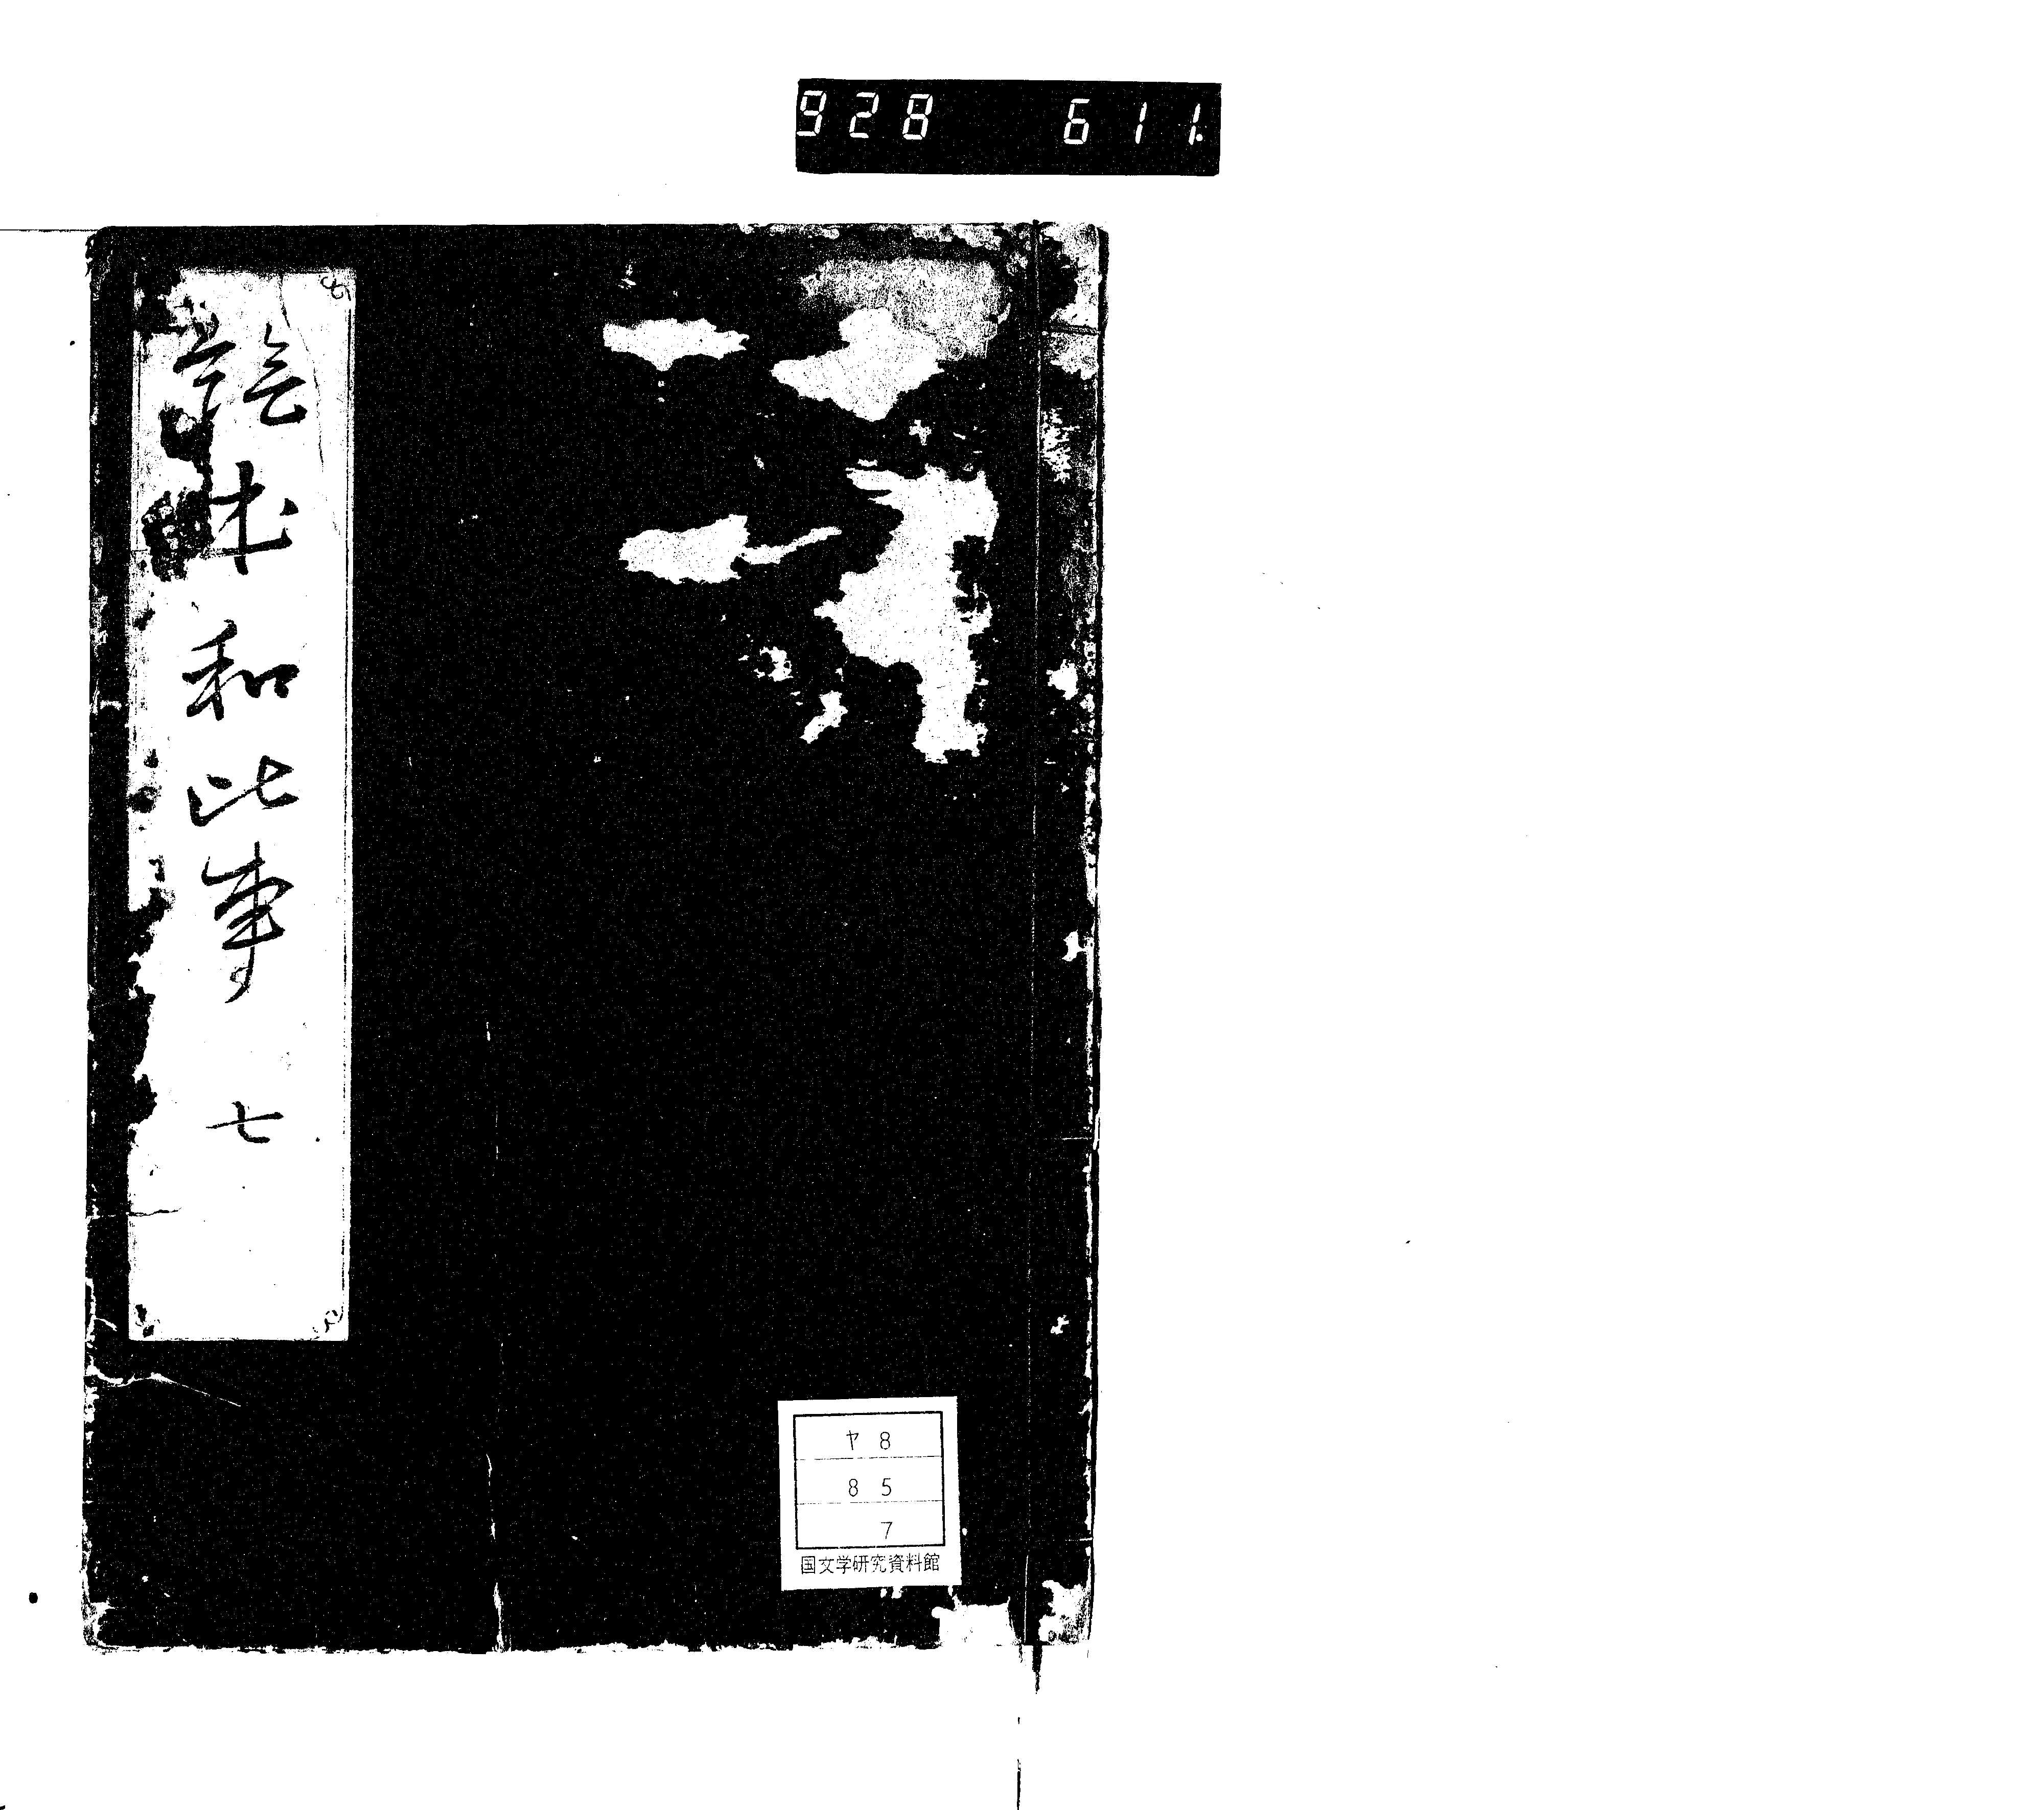 928 611.
和此事 七
ヤ 8
8 5
7
国文学研究資料館